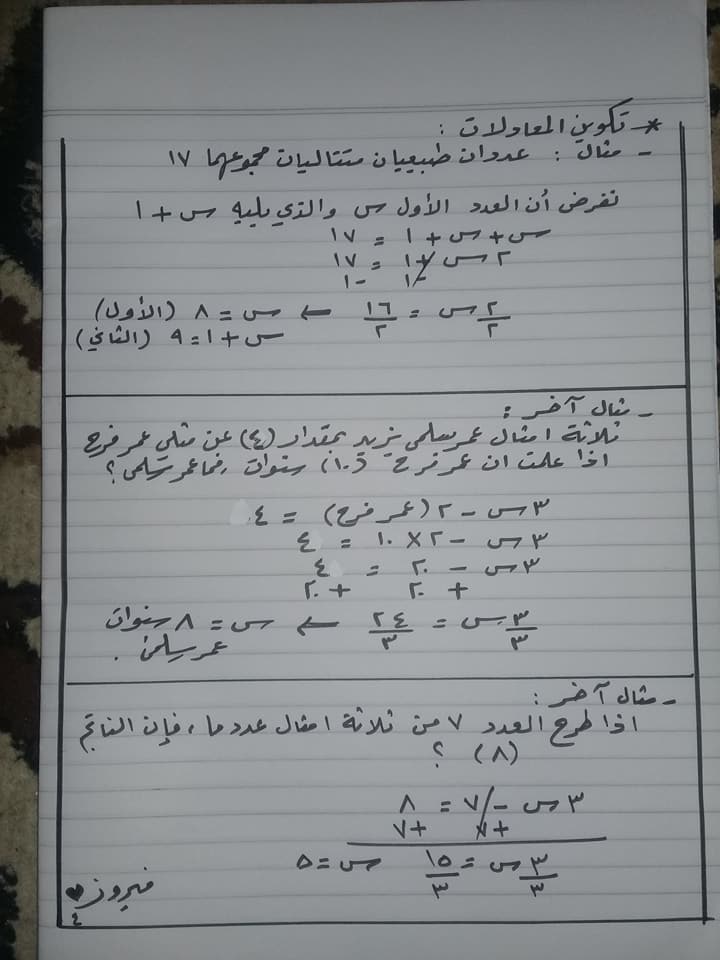 * تكوين المعادلات :
- مثال : عددان طبيعيان متتاليان مجموعهما ١٧
نفرض أن العدد الأول س والذي يليه س + ١
س + س + ١ = ١٧
٢ س + ١ = ١٧
-١ -١
٢/٢ س = ١٦/٢ ← س = ٨ (الأول)
س + ١ = ٩ (الثاني)
- مثال آخر :
ثلاثة امثال عمر سلمى يزيد بمقدار (٤) عن مثلي عمر فرح
اذا علمت ان عمر فرح (١٠) سنوات ، فما عمر سلمى ؟
٣ س - ٢ (عمر فرح) = ٤
٣ س - ٢ × ١٠ = ٤
٣ س - ٢٠ = ٤
+ ٢٠ + ٢٠
٣/٣ س = ٢٤/٣ ← س = ٨ سنوات
عمر سلمى .
- مثال آخر :
اذا طرح العدد ٧ من ثلاثة امثال عدد ما ، فإن الناتج
(٨) ؟
٣ س - ٧ = ٨
+٧ +٧
٣/٣ س = ١٥/٣ س = ٥
فيروز ♥
٤